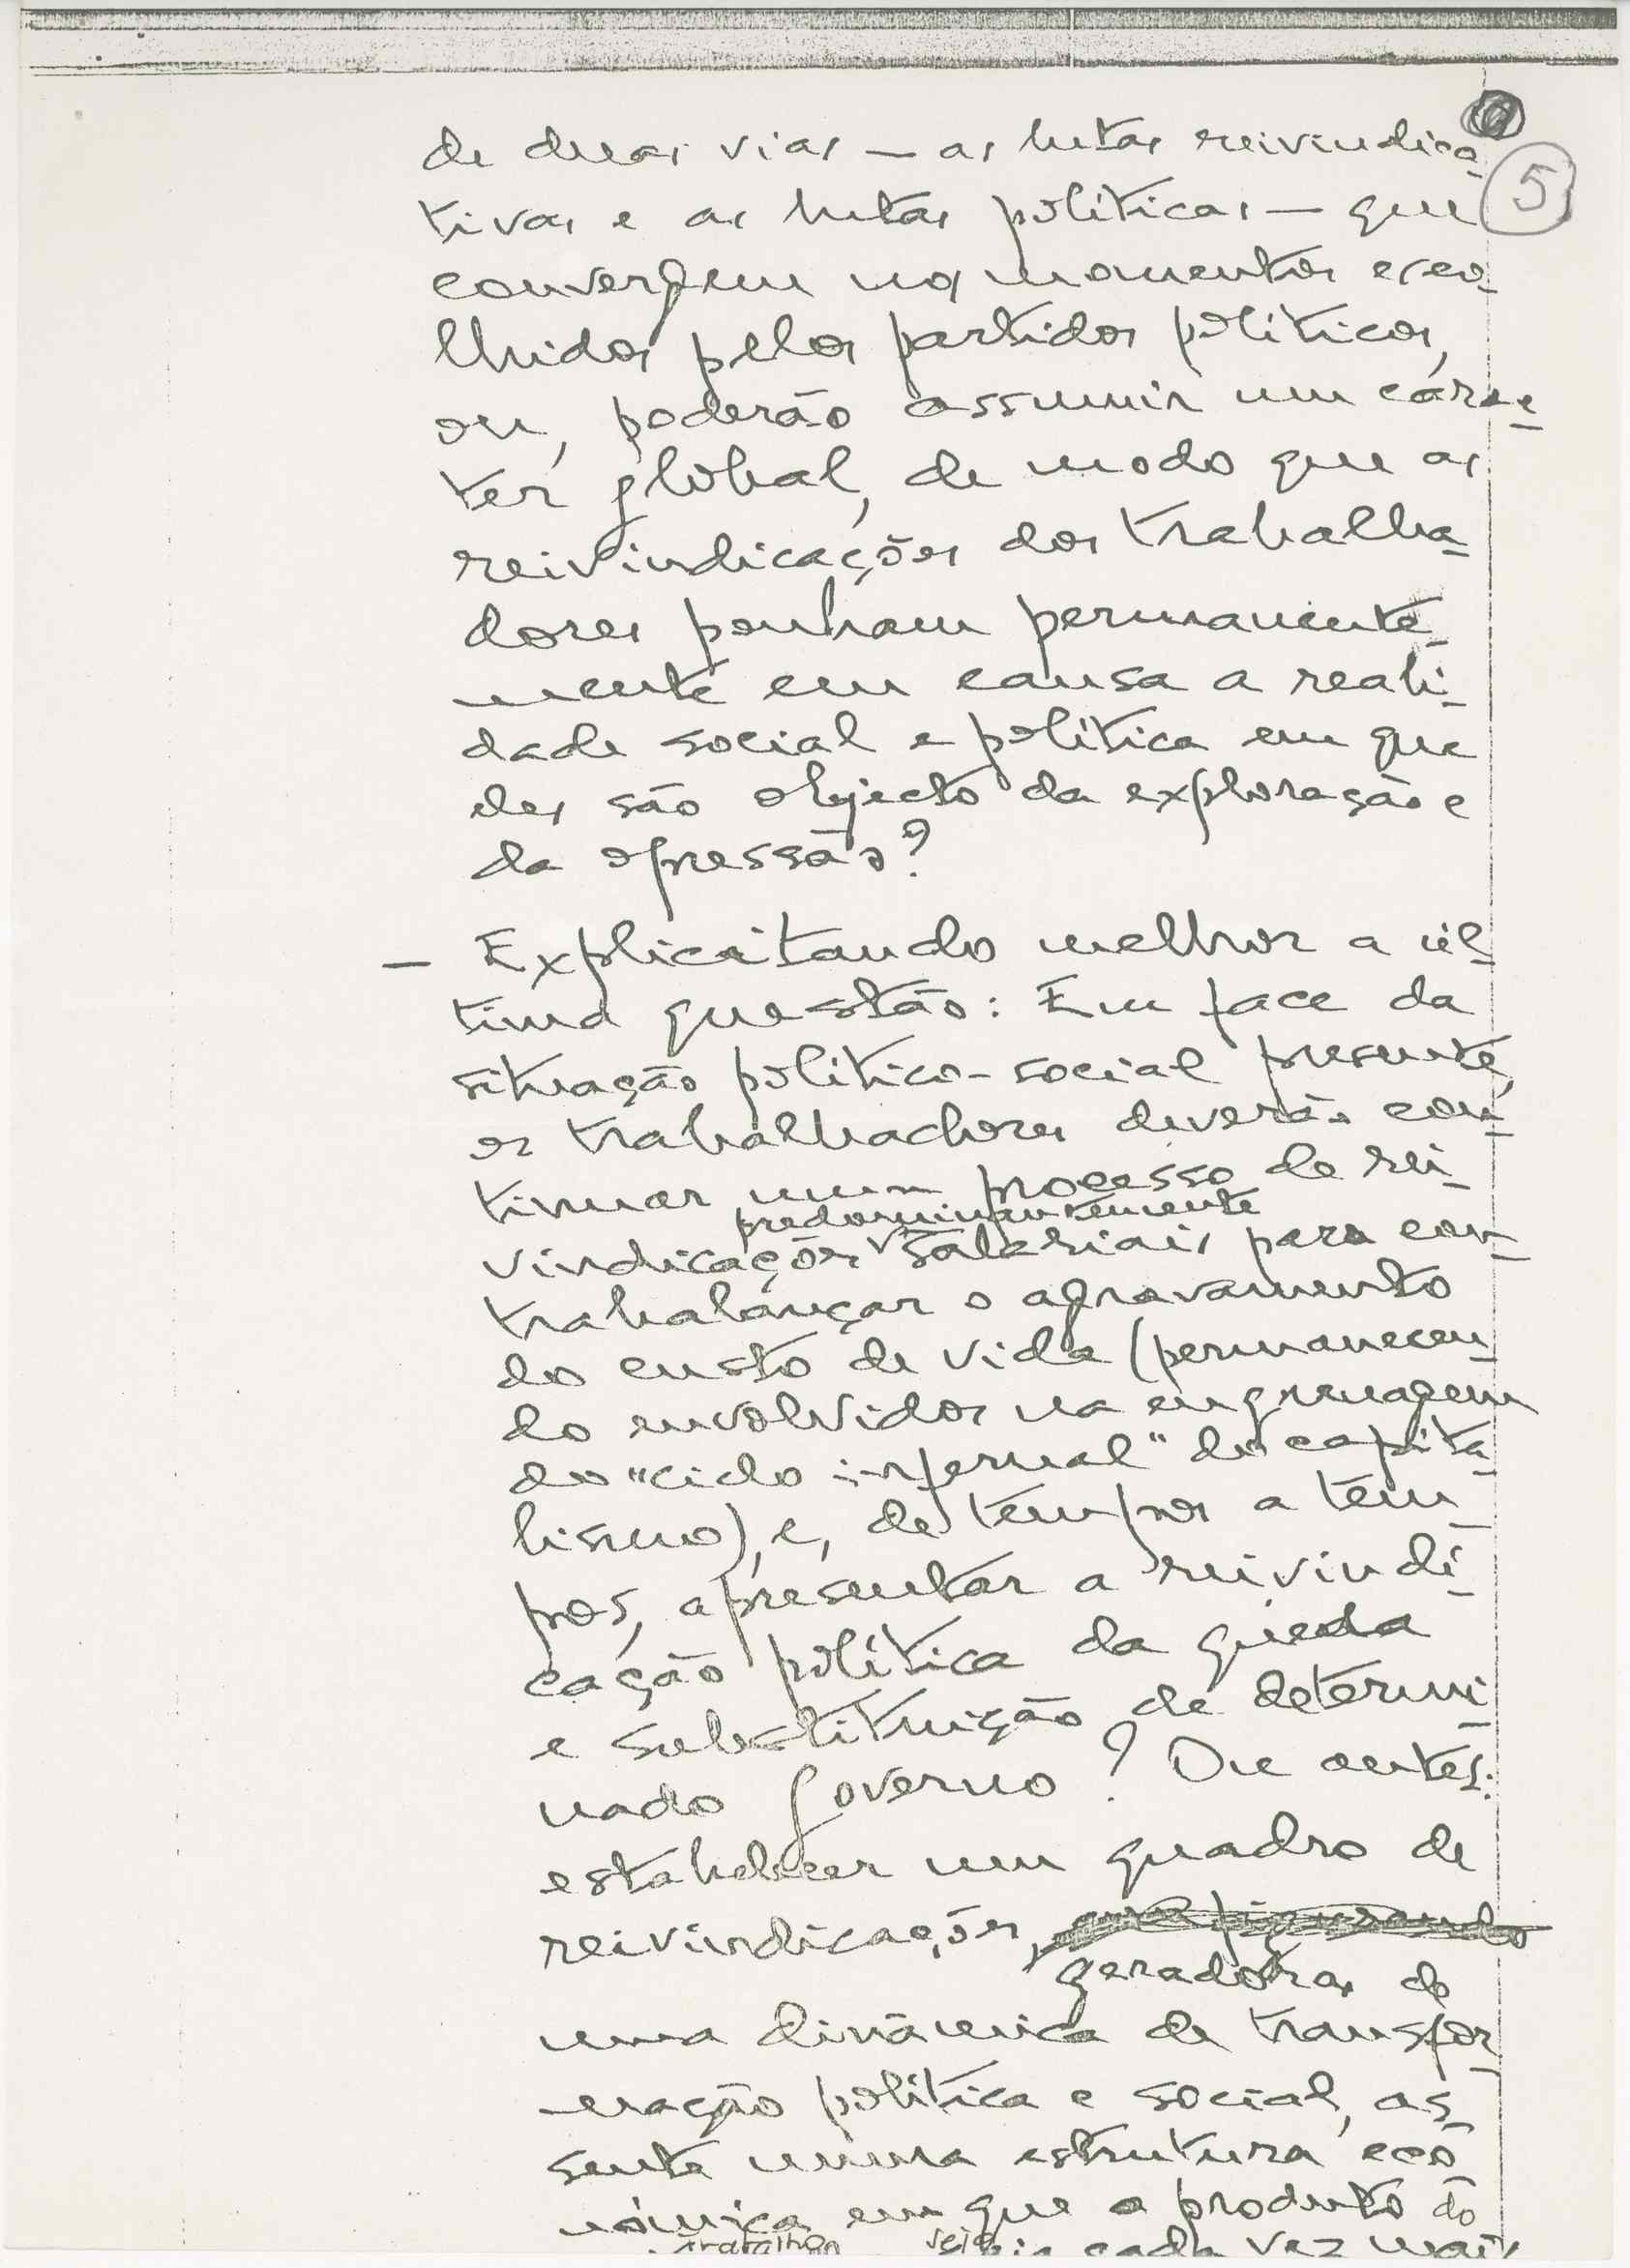 de duas vias — as lutas reivindica-
5
tivas e as lutas políticas — que
convergem nos momentos esco-
lhidos pelos partidos políticos,
ou, poderão assumir um carác-
ter global, de modo que as
reivindicações dos trabalha-
dores ponham permanente-
mente em causa a reali-
dade social e política em que
eles são objecto da exploração e
da opressão?
— Explicitando melhor a úl-
tima questão: Em face da
situação político-social presente,
os trabalhadores deverão con-
tinuar num processo de rei-
predominantemente
vindicações salariais para con-
trabalançar o agravamento
do custo de vida (permanecen-
do envolvidos na engrenagem
do "ciclo infernal" do capita-
lismo), e, de tempos a tem-
pos, apresentar a reivindi-
cação política da queda
e substituição de determi-
nado governo? Ou antes:
estabelecer um quadro de
reivindicações,
geradoras de
uma dinâmica de transfor-
mação política e social, as-
sente numa estrutura eco-
nómica em que o produto do
trabalho seja cada vez mais